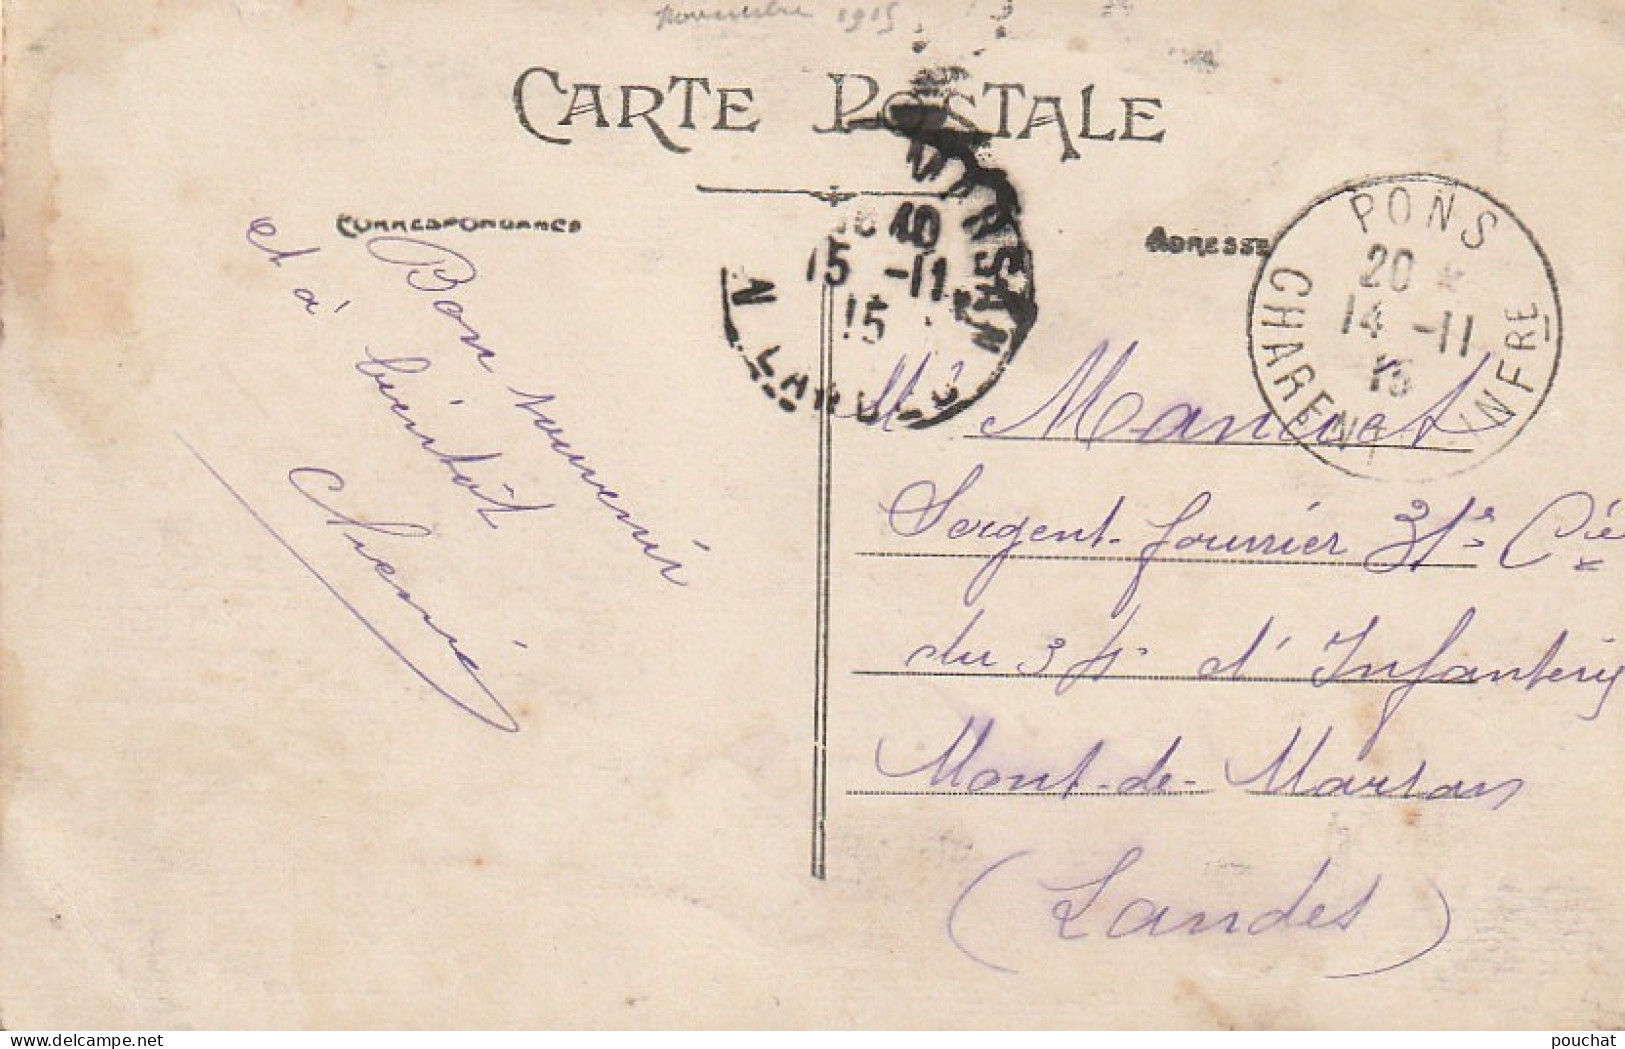 novembre 1915
CARTE POSTALE
CORRESPONDANCE
ADRESSE
Bon souvenir
et à bientôt
MARSAN
10 40
15 -11
15
LANDES
PONS
20 *
14 -11
15
CHARENTE INFRE
Mr Manuet
Sergent-fourrier 31e Cie
du 34e d'Infanterie
Mont-de-Marsan
(Landes)
pouchat